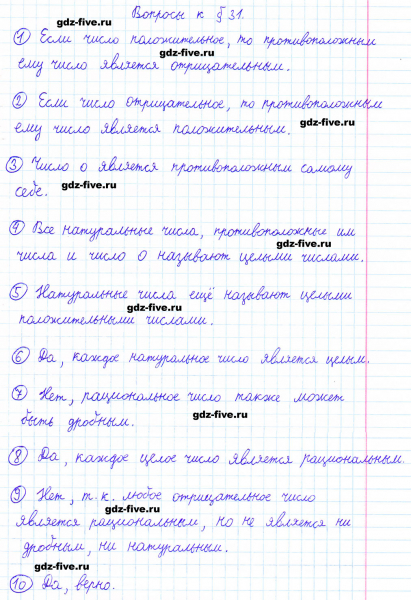 Вопросы к § 31.
gdz-five.ru
1 Если число положительное, то противоположным
gdz-five.ru
ему число является отрицательным.
2 Если число отрицательное, то противоположным
gdz-five.ru
ему число является положительным.
3 Число 0 является противоположным самому
gdz-five.ru
себе.
4 Все натуральные числа, противоположные им
gdz-five.ru
числа и число 0 называют целыми числами.
5 Натуральные числа ещё называют целыми
gdz-five.ru
положительными числами.
6 Да, каждое натуральное число является целым.
gdz-five.ru
7 Нет, рациональное число также может
gdz-five.ru
быть дробным.
8 Да, каждое целое число является рациональным.
gdz-five.ru
9 Нет, т.к. любое отрицательное число
gdz-five.ru
является рациональным, но не является ни
дробным, ни натуральным.
gdz-five.ru
10 Да, верно.